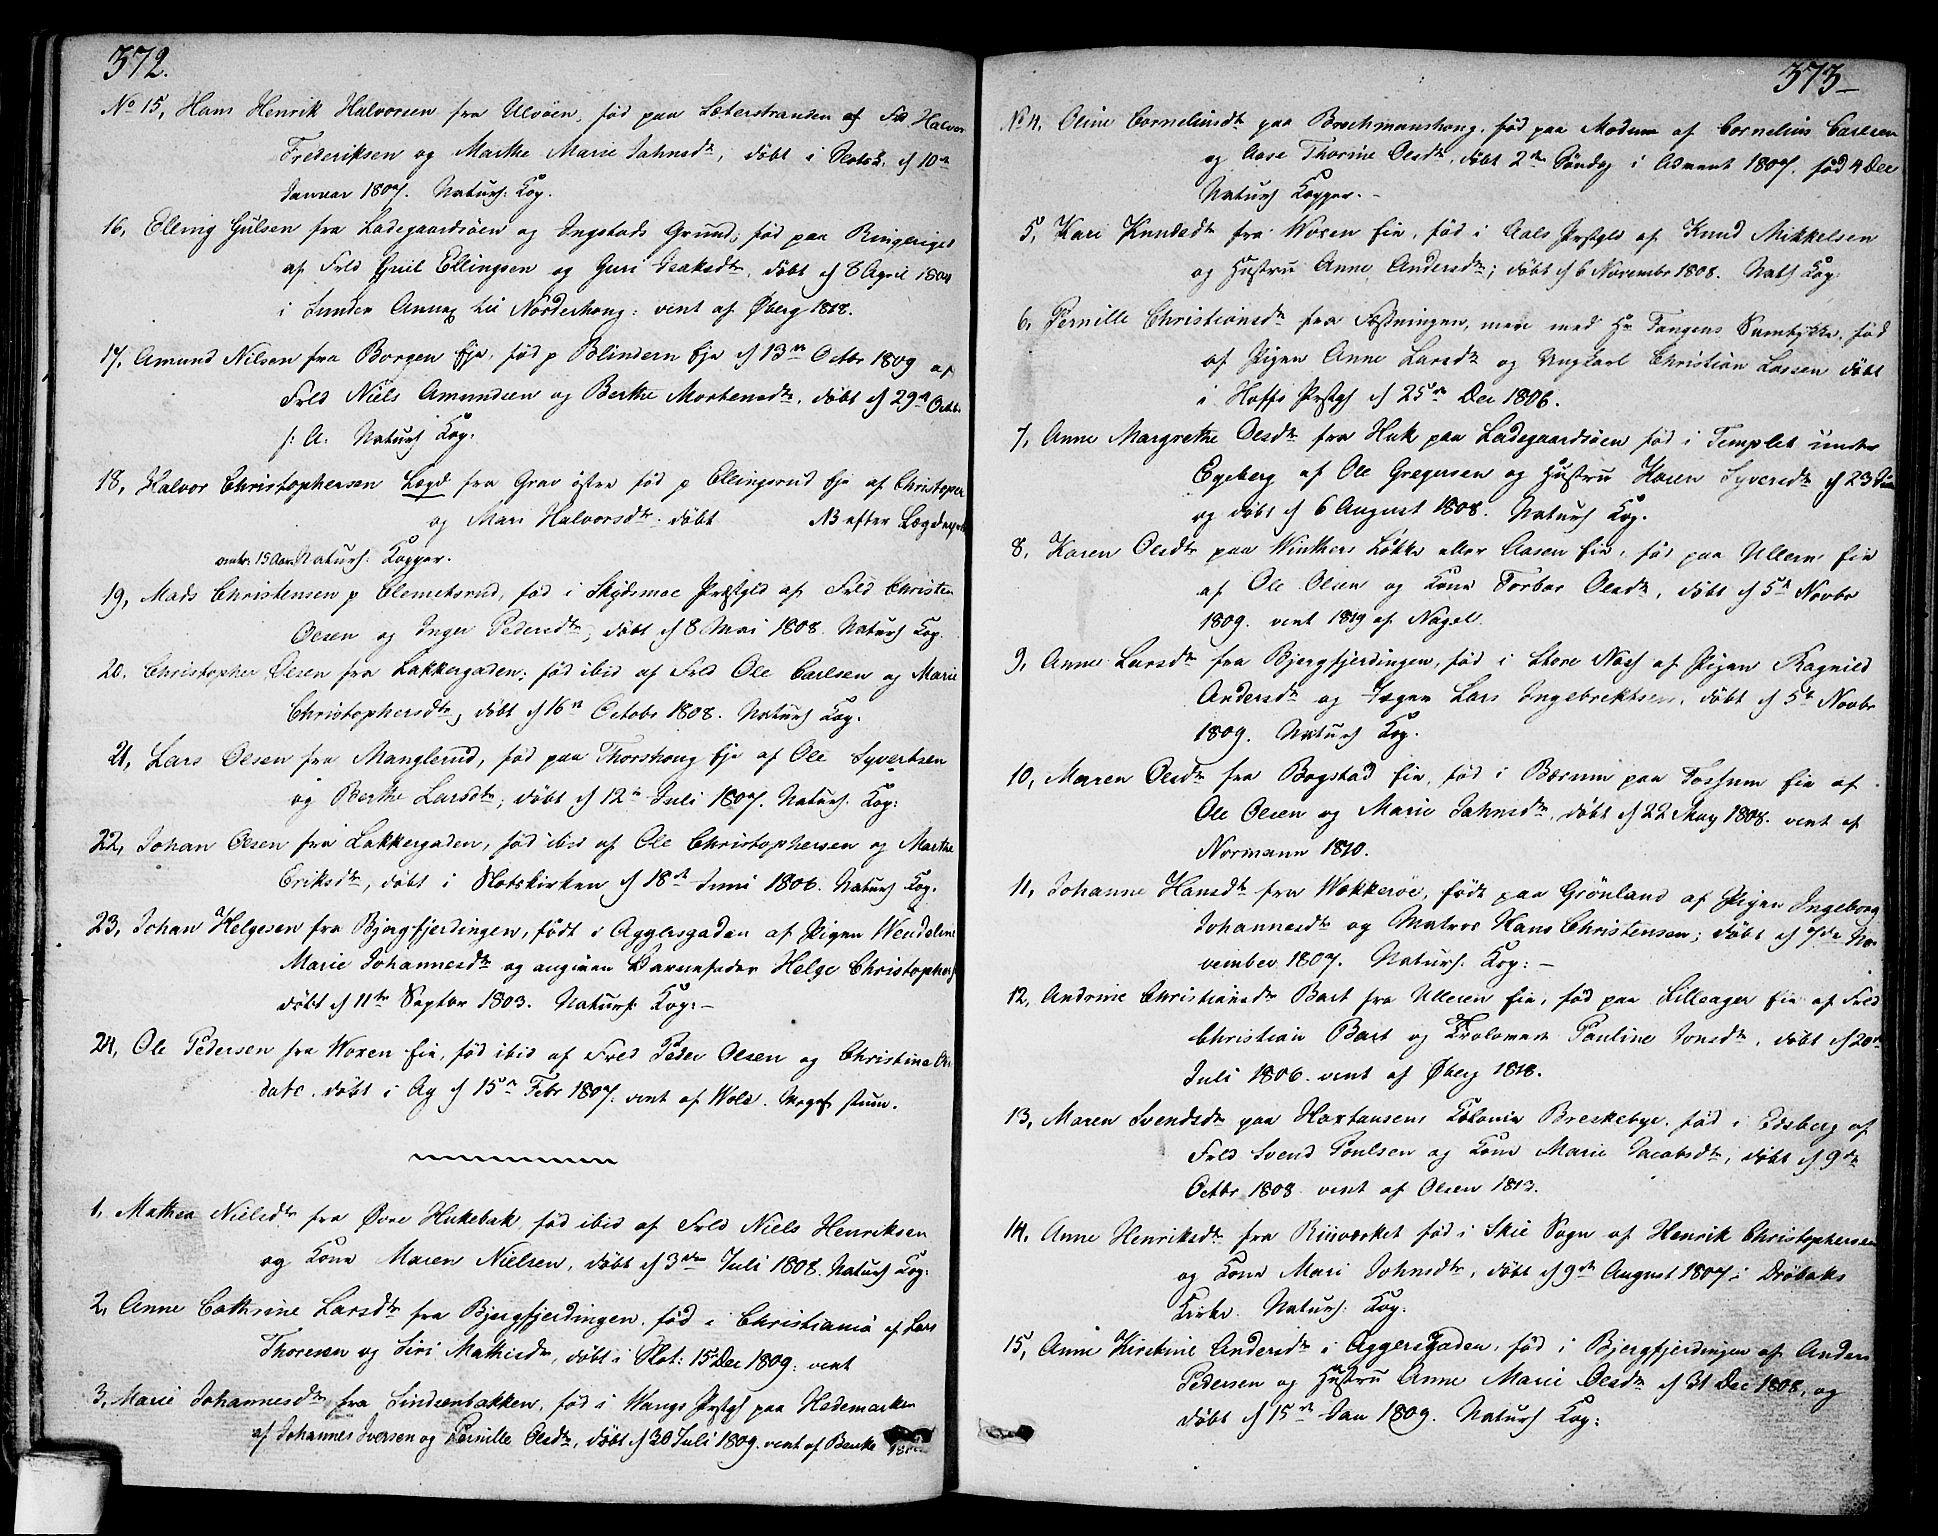 372.
No 15, Hans Henrik Halvorsen fra Ulvöen, fød paa Sæterstranden af Fld Halvor
Frederiksen og Marthe Marie Jahnsdtr, døbt i Slotsk. d 10de
Januar 1807. Naturl: Kop.
16, Elling Gulsen fra Ladegaardsöen og Ingstads Grund, fød paa Ringeriget
af Frld Guil Ellingsen og Guri Isaksdtr, døbt d 8 April 1804
i Lunder Annex til Nörderhoug: vent af Øberg 1818.
17, Amund Nilsen fra Borgen Eje, fød p Blindern Eje d 13de Octbr 1809 af
Frld Niels Amundsen og Berthe Mortensdtr, døbt d 29de Octbr
s: A: Naturl Kop:
18, Halvor Christophersen Lægd fra Grav östre fød p Ellingsrud Eje af Christopher
og Mari Halvorsdtr: døbt NB efter Lægds
omtr: 15 Aar. Naturl: Kopper.
19, Mads Christensen p Clemetsrud, fød i Skydsmoe Prstgld af Frld Christen
Olsen og Inger Pedersdtr, døbt d 8 Mai 1808. Naturl Kop.
20. Christopher Olsen fra Lakkergaden; fød ibid af Frld Ole Carlsen og Marie
Christophersdtr, døbt d 16de Octobr 1808. Naturl Kop:
21, Lars Olsen fra Manglerud, fød paa Thorshoug Eje af Ole Syvertsen
og Berthe Larsdtr, døbt d 12te Juli 1807. Naturl. Kop:
22, Johan Olsen fra Lakkergaden, fød ibid af Ole Christophersen og Marthe
Eriksdtr, døbt i Slotskirken d 18de Juni 1806. Naturl Kop.
23, Johan Helgesen fra Bjergfjerdingen, født i Aggersgaden af Pigen Wendeline
Marie Johannesdtr og angiven Barnefader Helge Christophers
døbt d 11te Septbr 1803. Naturl: Kop: -
24, Ole Pedersen fra Woxen Eie, fød ibid af Frld Peder Olsen og Christine
døbt i Ag d 15de Febr 1807. vent af Wole. Meget stum.
1, Mathea Nielsdtr fra Øvre Hukebak, fød ibid af Frld Niels Henriksen
og Kone Maren Nielsen, døbt d 3die Juli 1808. Naturl Kop:
2, Anne Cathrine Larsdtr fra Bjergfjerdingen, fød i Christiania af Lars
Thoresen og Siri Mathisdtr, døbt i Slot: 15 Dec 1809: vent
3, Marie Johannesdtr fra Lindsenbakken, fød i Wangs Prstgl paa Hedemarken
af Johannes Iversen og Pernille Olsdtr, døbt d 30 Juli 1809. vent af
373-
No 4. Oline Corneliusdtr paa Brochmanshoug, fød paa Modum af Cornelius Carlsen
og Aase Thorine Olsdtr, døbt 2den Søndag i Advent 1807. fød 4 Dec
Naturl Kopper. -
5, Kari Knudsdtr fra Woxen Eie, fød i Aals Prstgld af Knud Mikkelsen
og Hustru Anne Andersdtr; døbt d 6 Novembr 1808. Natl Kop:
6, Pernille Christiansdtr fra Fæstningen, men med Hr Tangens Samtykke, fød
af Pigen Anne Larsdtr og Ungkarl Christian Lassen døbt
i Hoffs Prstgl d 25de Dec 1806.
7, Anne Margrethe Olsdtr fra Huk paa Ladegaardsöen fød i Templet under
Egeberg af Ole Gregersen og Hustru Karen Syversdtr d 23
og døbt d 6 August 1808. Naturl Kop.
8, Karen Olsdtr paa Winthers Løkke eller Aasen Eie, fød paa Ullern Eie
af Ole Olsen og Kone Torbor Olsdtr, døbt d 5te Novbr
1809. vent 1819 af Nagel.
9, Anne Larsdtr fra Bjergfjerdingen, fød i Store Næss af Pigen Ragnild
Andersdtr og Jæger Lars Ingebrektsen, døbt d 5te Novbr
1809. Naturl Kop.
10, Maren Olsdtr fra Bogstad Eie, fød i Bærum paa Fossum Eie af
Ole Olsen og Marie Jahnsdtr, døbt d 22 May 1808. vent af
Normann 1810.
11, Johanne Hansdtr fra Wækkerøe, født paa Grönland af Pigen Ingeborg
Johannesdtr og Matros Hans Christensen; døbt d 7de No
vember 1807. Naturl: Kop: -
12, Andrine Christiansdtr Bart fra Ullern Eie, fød paa Lilleager Eie af Frld
Christian Bart og Pauline Jonsdtr, døbt d 20de
Juli 1806. vent af Øberg 1818.
13, Maren Svendsdtr paa Haxtausens Kolonie Breskebye, fød i Edsberg af
Frld Svend Poulsen og Kone Marie Jacobsdtr, døbt d 9de
Octbr 1808. vent af Olsen 1813.
14, Anne Henriksdtr fra Riisværket fød i Skie Sogn af Henrik Christophersen
og Kone Mari Johnsdtr, døbt d 9de August 1807 i Dröbaks
Kirke. Naturl: Kop:
15, Anne Kirstine Andersdtr i Aggersgaden, fød i Bjergfjerdingen af Anders
Pedersen og Hustru Anne Marie Olsdtr d 31 Dec 1808, og
døbt d 15de Jan 1809. Naturl Kop: